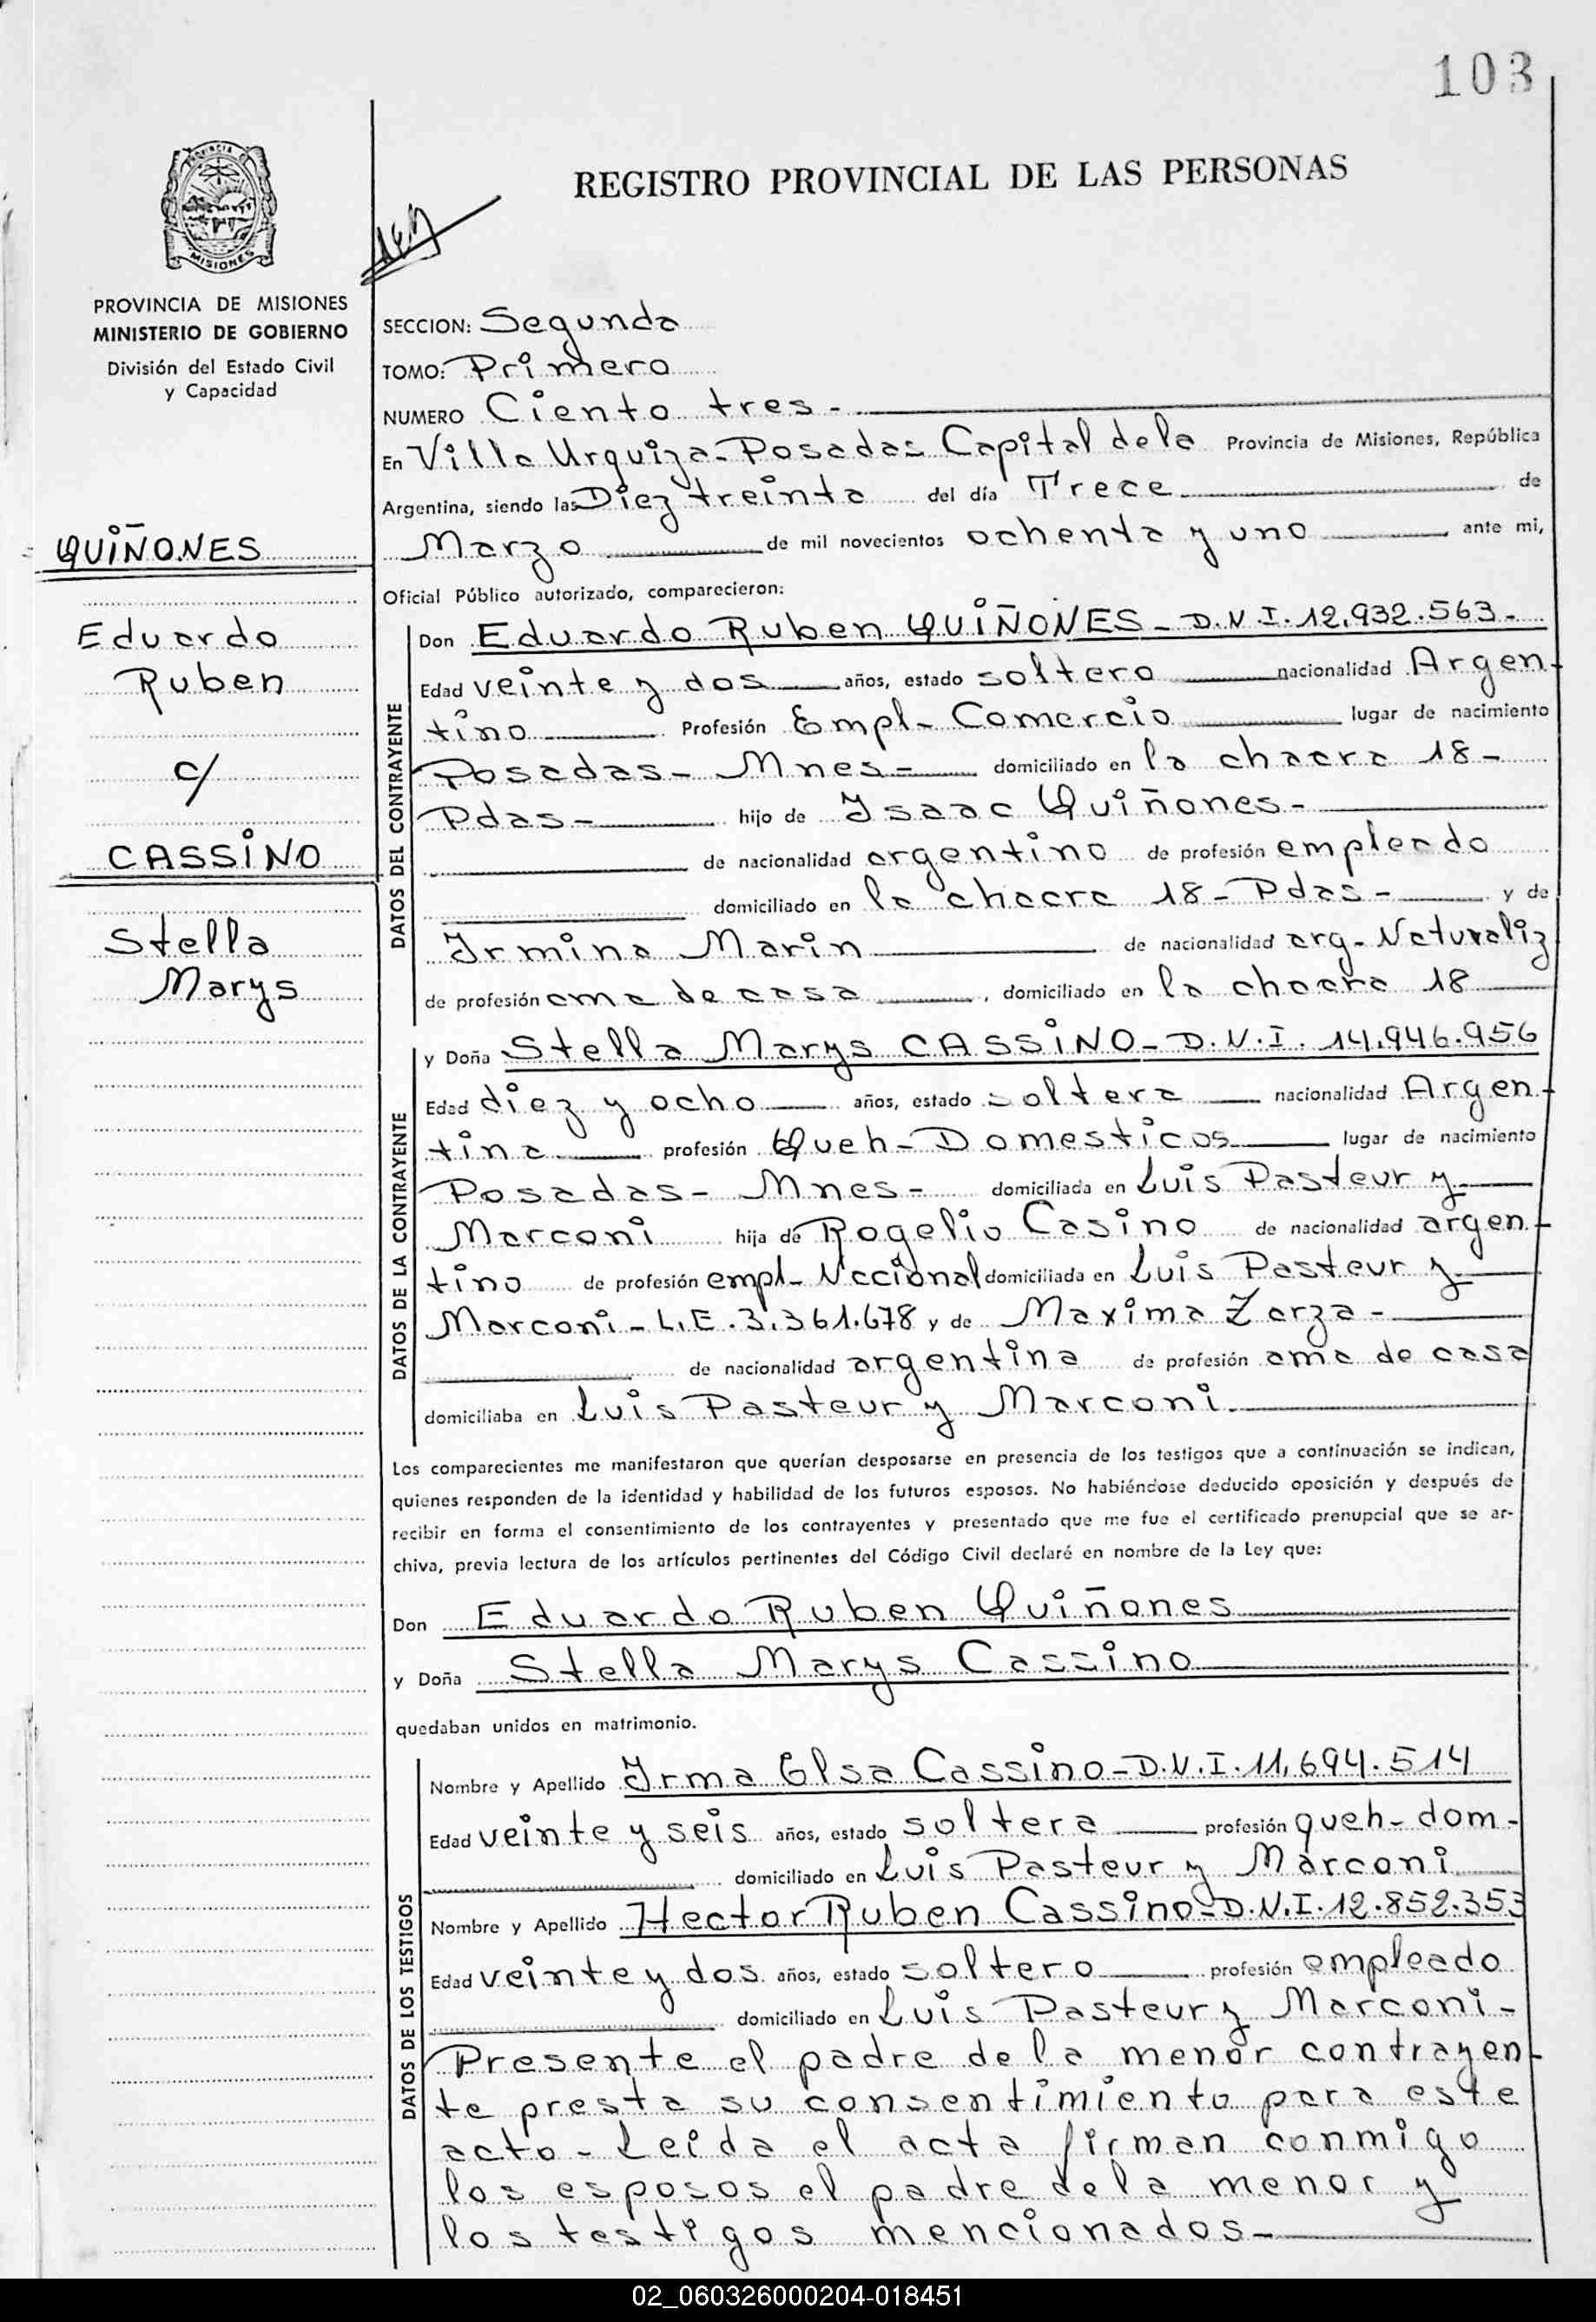 103
PROVINCIA
MISIONES
REGISTRO PROVINCIAL DE LAS PERSONAS
PROVINCIA DE MISIONES
MINISTERIO DE GOBIERNO
División del Estado Civil
y Capacidad
QUIÑONES
Eduardo
Ruben
c/
CASSINO
Stella
Marys
SECCION: Segunda
TOMO: Primero
NUMERO Ciento tres -
En Villa Urquiza - Posadas Capital de la Provincia de Misiones, República
Argentina, siendo las Diez treinta del día Trece de
Marzo de mil novecientos ochenta y uno ante mi,
Oficial Público autorizado, comparecieron:
DATOS DEL CONTRAYENTE
Don Eduardo Ruben QUIÑONES - D.N.I. 12.932.563 -
Edad veinte y dos años, estado soltero nacionalidad Argen-
tino Profesión Empl - Comercio lugar de nacimiento
Posadas - Mnes - domiciliado en la chacra 18 -
Pdas - hijo de Isaac Quiñones -
de nacionalidad argentino de profesión empleado
domiciliado en la chacra 18 - Pdas - y de
Irmina Marin de nacionalidad arg - Naturaliz
de profesión ama de casa, domiciliado en la chacra 18
DATOS DE LA CONTRAYENTE
y Doña Stella Marys CASSINO - D.N.I. 14.946.956
Edad diez y ocho años, estado soltera nacionalidad Argen-
tina profesión Queh - Domesticos lugar de nacimiento
Posadas - Mnes - domiciliada en Luis Pasteur y
Marconi hija de Rogelio Casino de nacionalidad argen-
tino de profesión empl - Nacional domiciliada en Luis Pasteur y
Marconi - L.E. 3.361.678 y de Maxima Zarza -
de nacionalidad argentina de profesión ama de casa
domiciliaba en Luis Pasteur y Marconi.
Los comparecientes me manifestaron que querían desposarse en presencia de los testigos que a continuación se indican,
quienes responden de la identidad y habilidad de los futuros esposos. No habiéndose deducido oposición y después de
recibir en forma el consentimiento de los contrayentes y presentado que me fue el certificado prenupcial que se ar-
chiva, previa lectura de los artículos pertinentes del Código Civil declaré en nombre de la Ley que:
Don Eduardo Ruben Quiñones
y Doña Stella Marys Cassino
quedaban unidos en matrimonio.
DATOS DE LOS TESTIGOS
Nombre y Apellido Irma Elsa Cassino - D.N.I. 11.694.514
Edad veinte y seis años, estado soltera profesión queh - dom -
domiciliado en Luis Pasteur y Marconi
Nombre y Apellido Hector Ruben Cassino - D.N.I. 12.852.353
Edad veinte y dos años, estado soltero profesión empleado
domiciliado en Luis Pasteur y Marconi -
Presente el padre de la menor contrayen-
te presta su consentimiento para este
acto - Leida el acta firman conmigo
los esposos el padre de la menor y
los testigos mencionados -
02_060326000204-018451